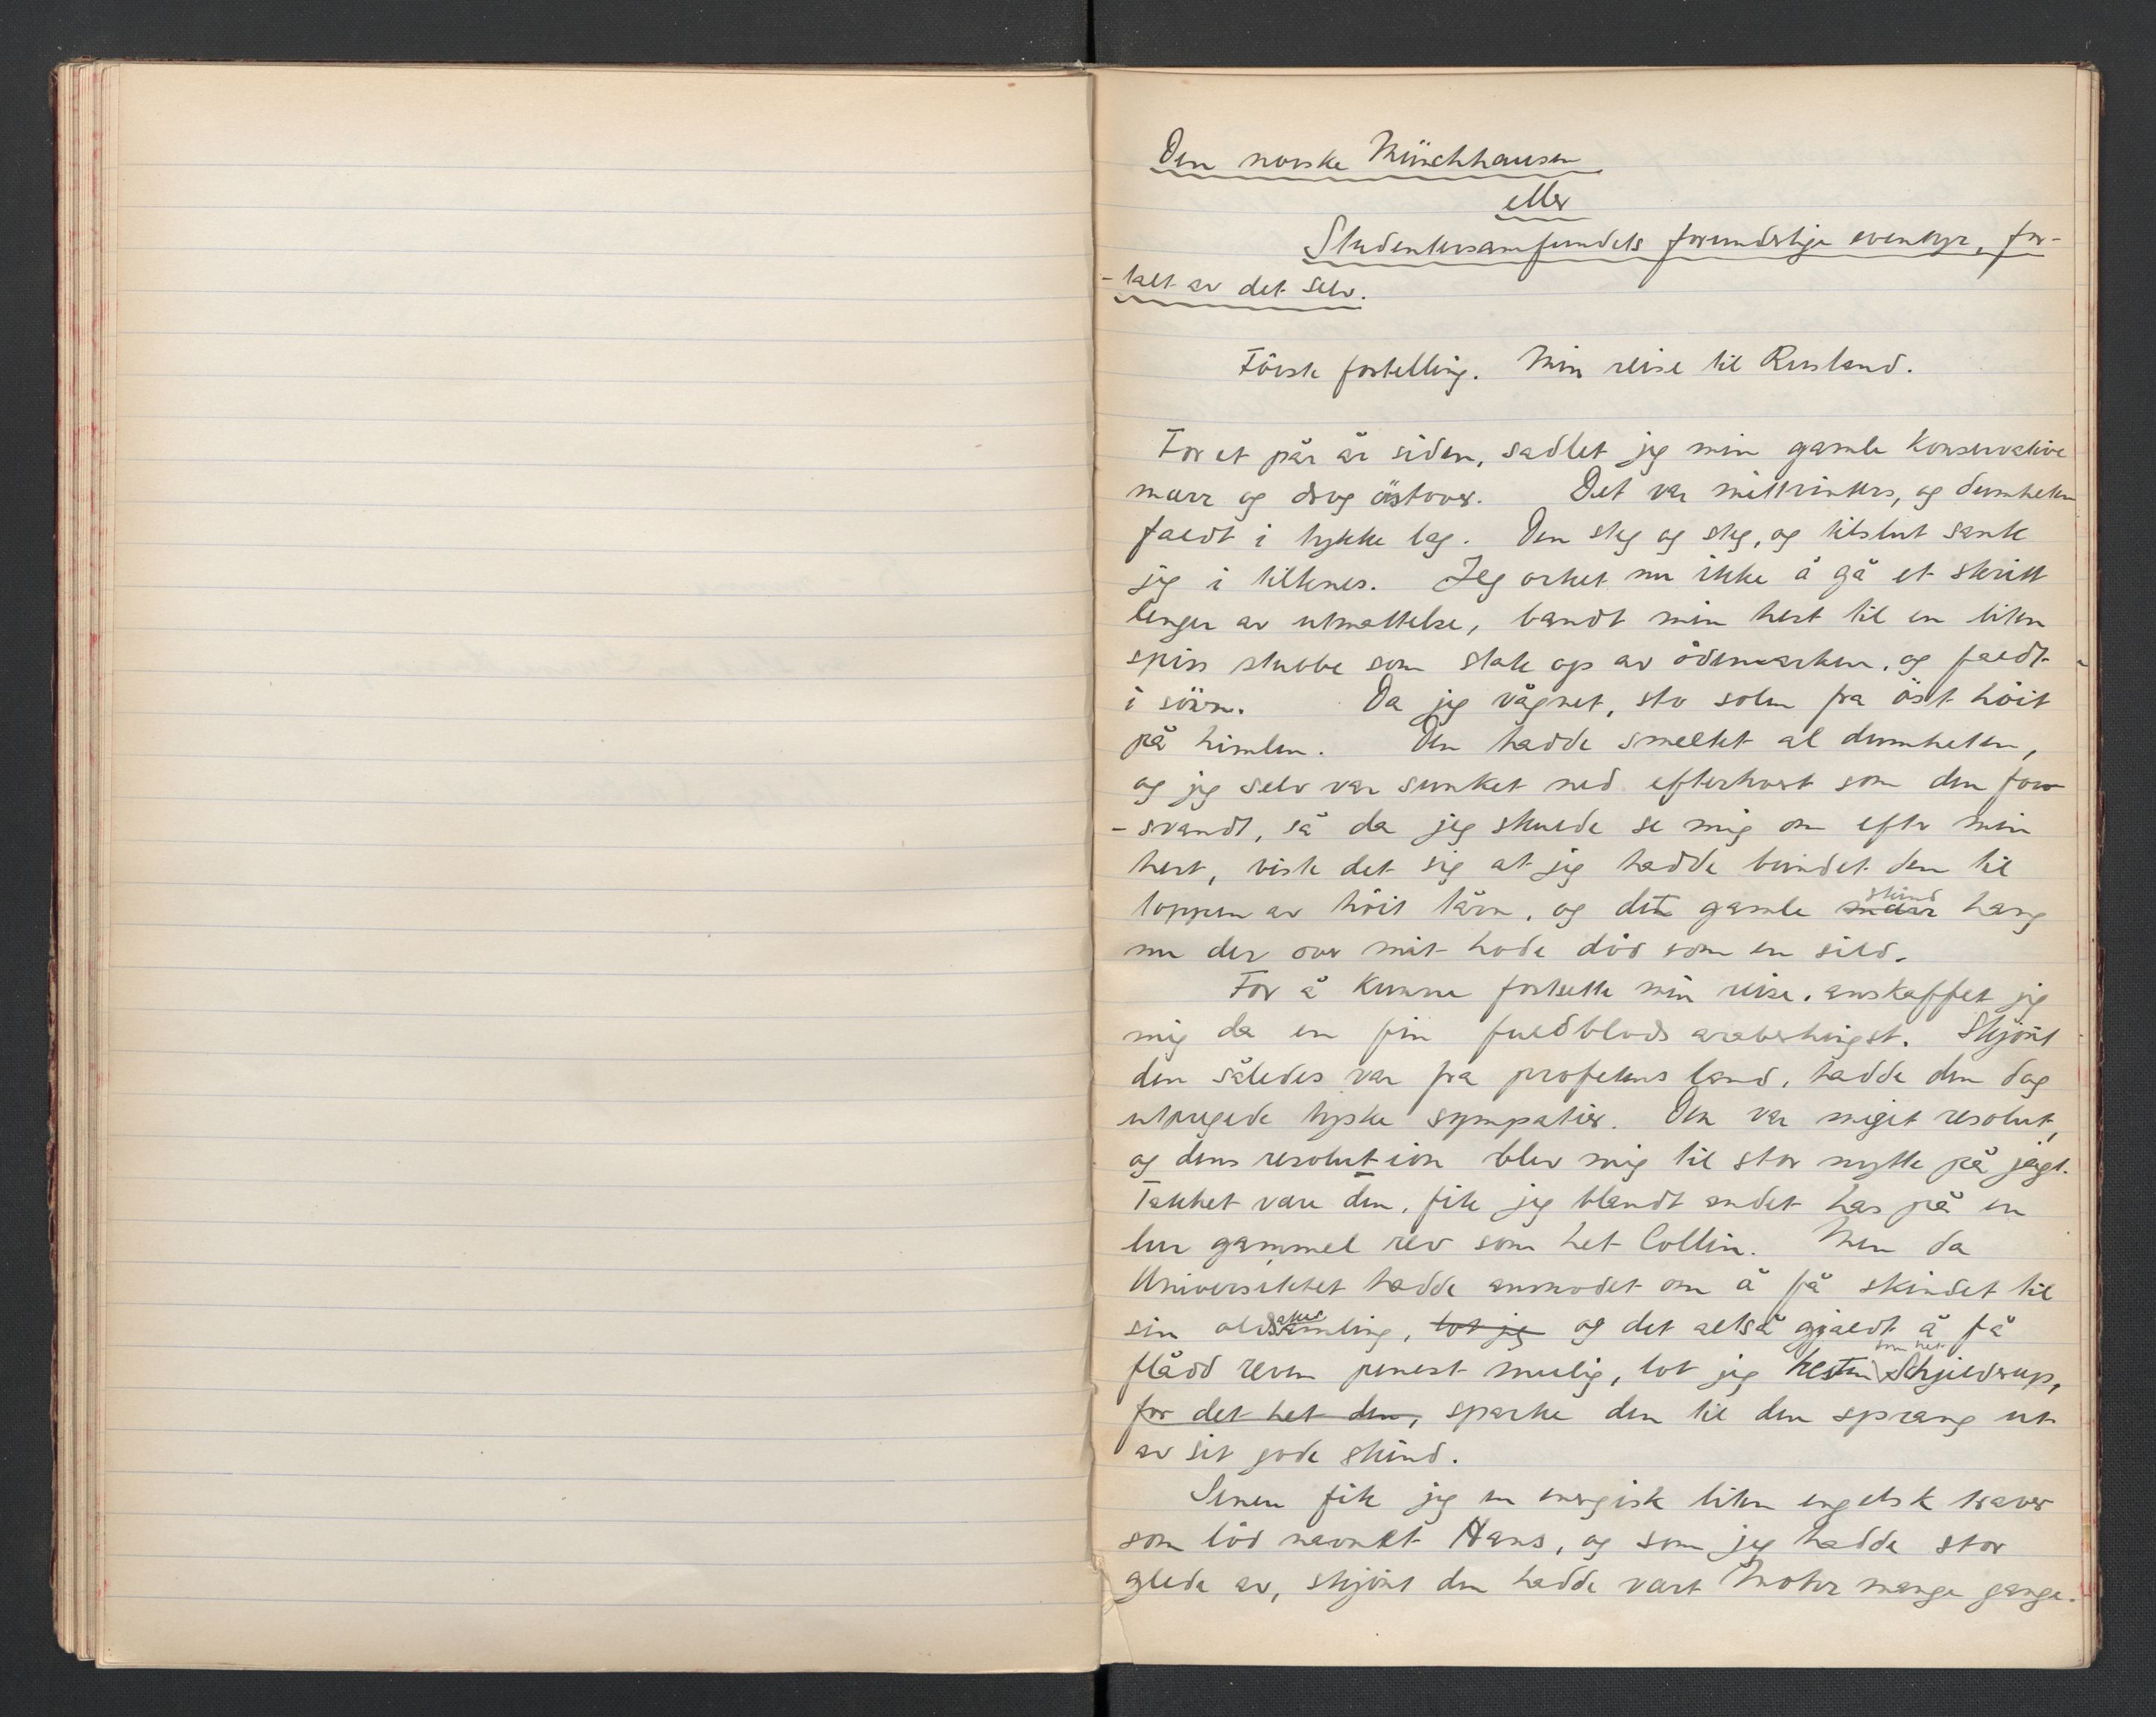 Den norske Münchhausen
eller
Studentersamfundets forunderlige eventyr, for-
-talt av det selv.
Første fortelling. Min reise til Rusland.
For et pår år siden, sadlet jeg min gamle konservative
marr og drog østover. Det var mittvinters, og dumheten
faldt i tykke lag. Den steg og steg, og tilslut sank
jeg i tilknes. Jeg orket nu ikke å gå et skritt
lenger av utmattelse, bandt min hest til en liten
spiss stubbe som stak op av ödemarken, og faldt
i sövn. Da jeg vågnet, sto solen fra öst höit
på himlen. Den hadde smeltet al dumheten,
og jeg selv var sunket ned efterhvert som den for-
-svandt, så da jeg skulde se mig om efter min
hest, viste det sig at jeg hadde bundet den til
toppen av höit tårn, og det gamle marr skind hang
nu der over mit hode död som en sild.
For å kunne fortsette min reise, anskaffet jeg
mig da en fin fuldblods araberhingst. Skjönt
den således var fra profetens land, hadde den dog
utpregede tyske sympatier. Den var meget resolut,
og dens resolution blev mig til stor nytte på jagt.
Takket være den, fik jeg blandt andet has på en
lur gammel rev som het Collin. Men da
Universitetet hadde anmodet om å få skindet til
sin oldsaksamling, lot jeg og det altså gjaldt å få
flådd reven penest mulig, lot jeg hesten som het Schjelderup,
for det het den, sparke den til den sprang ut
av sit gode skind.
Senere fik jeg en energisk liten engelsk traver
som löd navnet Hans, og som jeg hadde stor
glede av, skjönt den hadde vært Mohr mange gange.